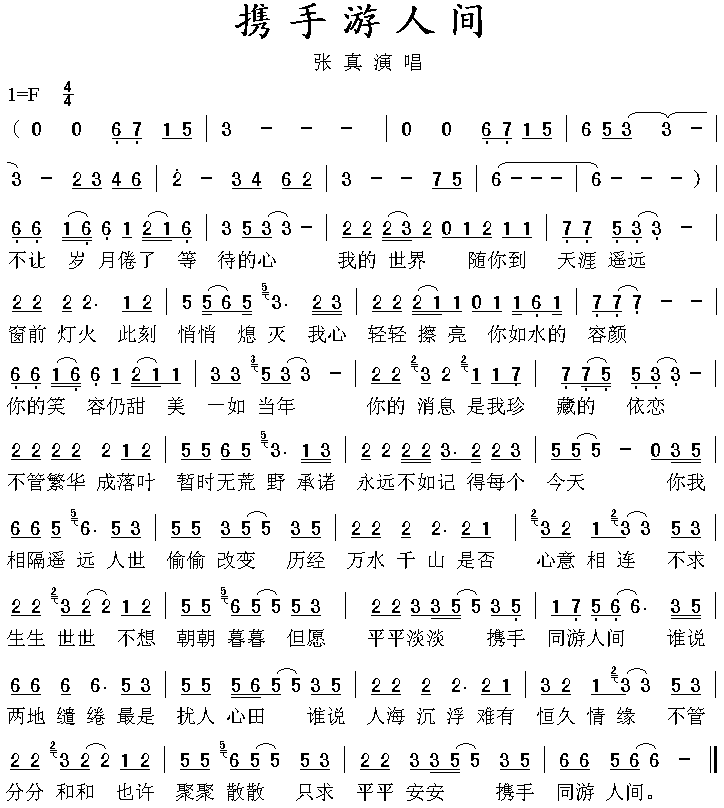 携手游人间
张真演唱
1=F 4/4
( 0 0 6 7 1 5 | 3 - - - | 0 0 6 7 1 5 | 6 5 3 3 - |
3 - 2 3 4 6 | 2 - 3 4 6 2 | 3 - - 7 5 | 6 - - - | 6 - - - ) |
6 6 1 6 6 1 2 1 6 | 3 5 3 3 - | 2 2 2 3 2 0 1 2 1 1 | 7 7 5 3 3 - |
不让 岁 月倦了 等 待的心 我的 世界 随你到 天涯 遥远
2 2 2 2· 1 2 | 5 5 5 6 5 5 3· 2 3 | 2 2 2 1 1 0 1 1 6 1 | 7 7 7 - - |
窗前 灯火 此刻 悄悄 熄 灭 我心 轻轻 擦 亮 你如水的 容颜
6 6 1 6 6 1 2 1 1 | 3 3 3 5 3 3 - | 2 2 2 3 2 2 1 1 1 7 | 7 7 5 5 3 3 - |
你的笑 容仍甜 美 一如 当年 你的 消息 是我珍 藏的 依恋
2 2 2 2 2 1 2 | 5 5 6 5 5 3· 1 3 | 2 2 2 2 3· 2 2 3 | 5 5 5 - 0 3 5 |
不管繁华 成落叶 暂时无荒 野 承诺 永远不如记 得每个 今天 你我
6 6 5 5 6· 5 3 | 5 5 3 5 5 3 5 | 2 2 2 2· 2 1 | 2 3 2 1 2 3 3 5 3 |
相隔遥 远 人世 偷偷 改变 历经 万水 千 山 是否 心意 相 连 不求
2 2 2 3 2 2 1 2 | 5 5 5 6 5 5 5 3 | 2 2 3 3 5 5 3 5 | 1 7 5 6 6· 3 5 |
生生 世世 不想 朝朝 暮暮 但愿 平平淡淡 携手 同游人间 谁说
6 6 6 6· 5 3 | 5 5 5 6 5 5 3 5 | 2 2 2 2· 2 1 | 3 2 1 2 3 3 5 3 |
两地 缱 绻 最是 扰人 心田 谁说 人海 沉 浮 难有 恒久 情 缘 不管
2 2 2 3 2 2 1 2 | 5 5 5 6 5 5 5 3 | 2 2 3 3 5 5 3 5 | 6 6 5 6 6 - ‖
分分 和和 也许 聚聚 散散 只求 平平 安安 携手 同游 人间。